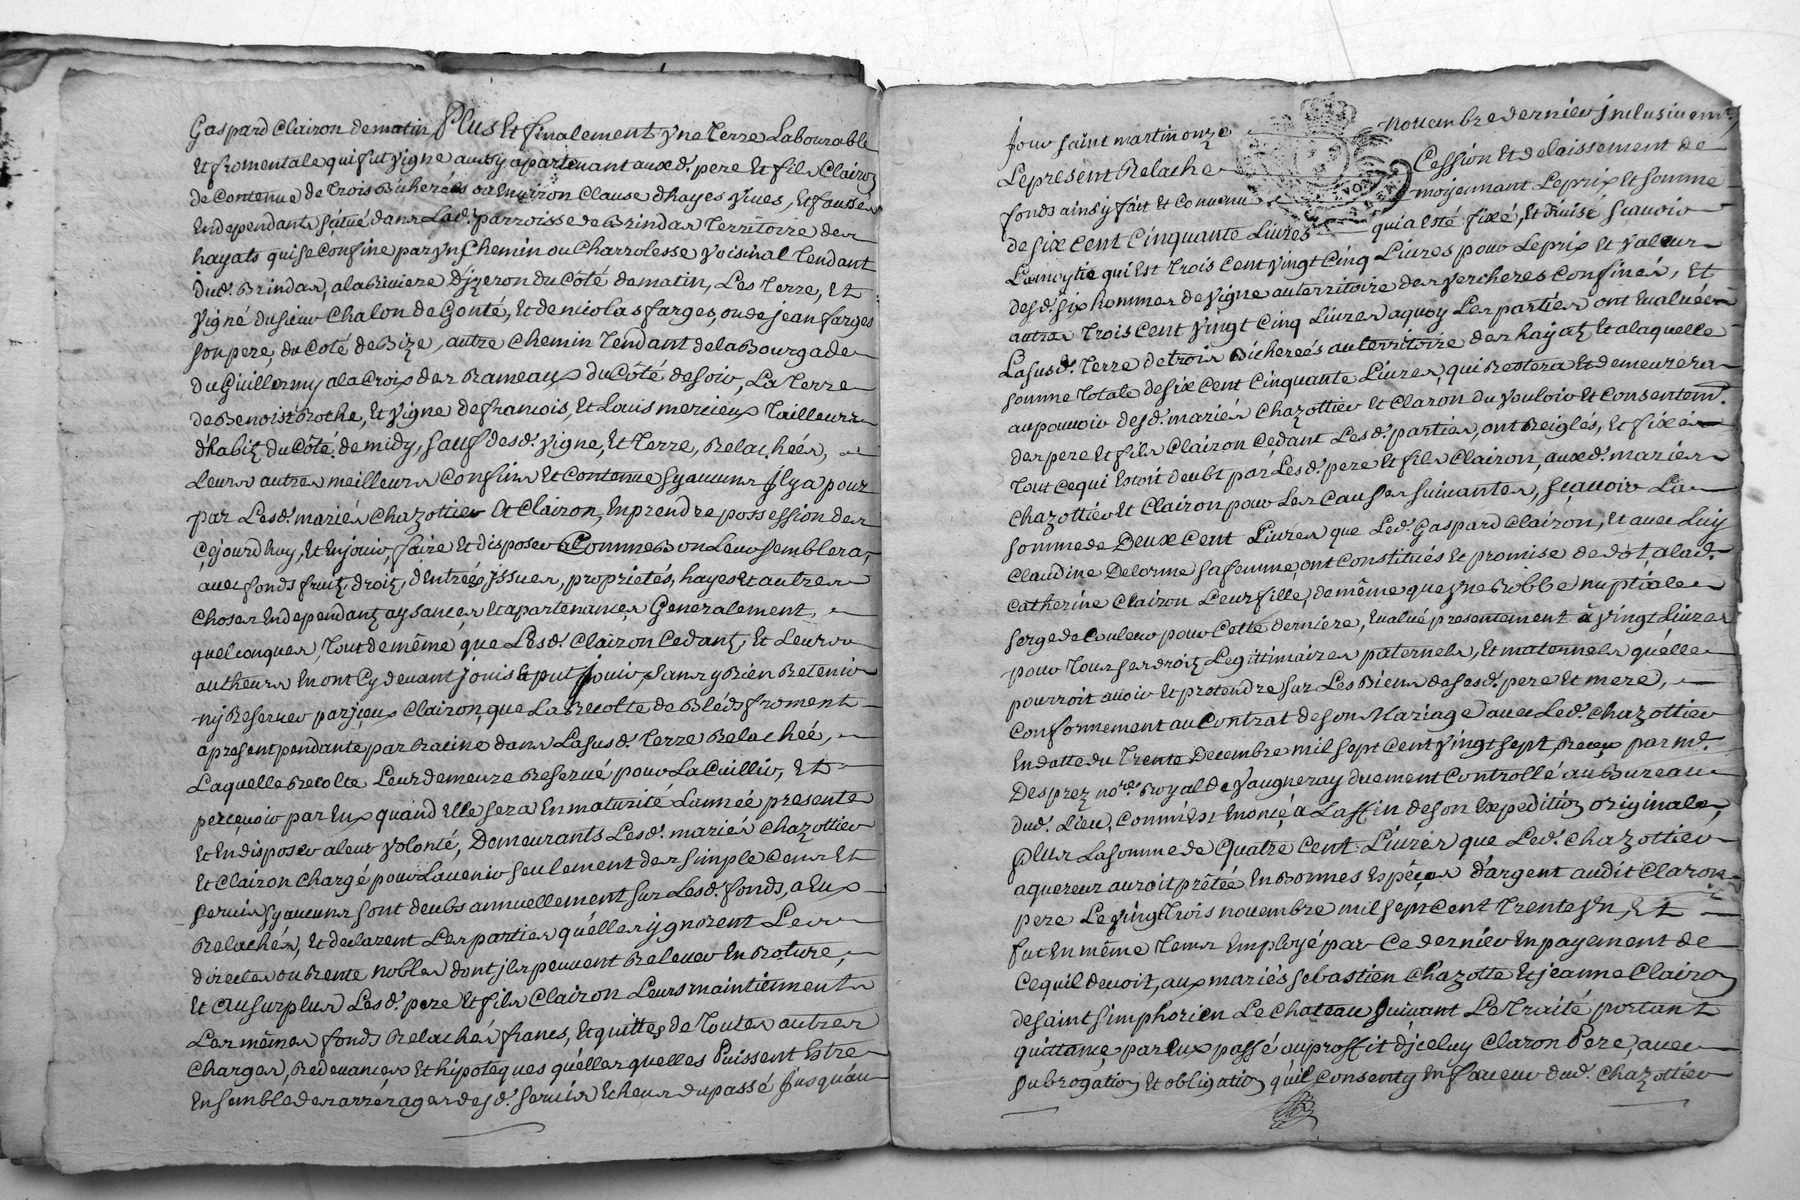 Gaspard Clairon de matin, Plus Et finalement yne Terre Labourable
Et fromentale qui fut vigne aussy apartenant aux d. pere Et fils Clairon
de Contenue de Trois Bicherées ou Environ Clause d'hayes vives, Et fossés
Independants située dans Lad. parroisse de Brindas Territoire des
hayats qui se Confine par yn Chemin ou Charrolesse voisinal Tendant
dud. Brindas, a la Riviere D'jzeron du Côté de matin, Les Terre, Et
vigne du sieur Chalon de Gonté, Et de nicolas farges, ou de jean farges
son pere, du Coté de Bize, autre Chemin Tendant de la Bourgade
du Guillermy a la Croix des Rameaux du Côté de soir, La Terre
de Benoist Roche, Et vigne de francois, Et Louis mercieux Tailleurs
d'habitz du Côté de midy, sauf desd. vigne, Et Terre, Relachées,
Leurs autres meilleurs Confins Et Contenue sy aucuns Il y a pour
par Lesd. mariés Chazottier Et Clairon, En prendre possession des
Cejourdhuy, Et En jouir, faire Et disposer Comme Bon Leur semblera,
avec fonds fruitz, droitz, d'Entrées jssues, proprietés, hayes Et autres
Choses Independantz aysances Et apartenances Generalement
quelconques, Tout de même que Lesd. Clairon Cedantz, Et Leurs
autheurs En ont Cy devant joui Et put jouir, sans y Rien Retenir
ny Reserver par jceux Clairon, que La Recolte de Bleds froment
apresent pendante par Racine dans La susd. Terre Relachée,
Laquelle Recolte Leur demeure Reservé pour La Cuillir, Et
perçevoir par Eux quand Elle sera En maturité L'année presente
Et En disposer a leur volonté, Demeurants Lesd. mariés Chazottier
Et Clairon Chargé pour L'avenir seulement des simple Cens Et
servis sy aucuns sont deubs annuellement sur Lesd. fonds, a Eux
Relachés, Et declarent Les parties qu'elles ygnorent Les
directes ou Rente nobles dont jls peuvent Relever En Roture,
Et au surplus Lesd. pere Et fils Clairon Leurs maintiennent
Les mêmes fonds Relachés francs, Et quittes de Toutes autres
Charges, Redevances Et hipoteques quélles quelles Puissent Estre
Ensemble des arrérages desd. servis Echeus du passé Jusqu'au
Jour saint martin onze novembre dernier Inclusivemt.
Le present Relache Cession Et delaissement de
fonds ainsy fait Et Convenu moyennant Le prix Et somme
de six Cent Cinquante Livres qui a Esté fixé, Et divisé scavoir
La moytié qui Est Trois Cent vingt Cinq Livres pour Le prix Et valeur
desd. six hommes de vigne au territoire des vercheres Confinés, Et
autres Trois Cent vingt Cinq Livres a quoy Les parties ont Evaluée
La susd. Terre de trois Bicherées au territoire des hayatz Et a laquelle
somme Totale de six Cent Cinquante Livres, qui Restera Et demeurera
au pouvoir desd. mariés Chazottier Et Claron du vouloir Et Consentemt.
des pere Et fils Clairon Cedant Lesd. parties, ont Reiglés, Et fixés
Tout Ce qui Estoit deubt par Lesd. pere Et fils Clairon, aux d. mariés
Chazottier Et Clairon pour Les Causes suivantes, sçavoir La
somme de Deux Cent Livres que Led. Gaspard Clairon, Et avec Luy
Claudine Delorme sa femme, ont Constitués Et promise de dôt, a lad.
Catherine Clairon Leur fille, de même que yne Robbe nuptiale
serge de Couleur pour Cette derniere, Evalué presentement à vingt Livres
pour Tous ses droitz Legittimaires paternels, Et maternels quélle
pourroit avoir Et pretendre sur Les Biens de sesd. pere Et mere,
Conformement au Contrat de son Mariage avec Led. Chazottier
En datte du Trente Decembre mil sept Cent vingt sept, Reçeu par Me.
Desprez nore. Royal de Vaugneray duement Controllé au Bureau
dud. Lieu, Comme Est Enoncé a La ffin de son Expedition originale,
plus La somme de Quatre Cent Livres que Led. Chazottier
aquereur auroit prêtée En Bonnes Espéces d'argent audit Claron
pere Le vingt Trois novembre mil sept Cent Trente yn, Et
fut En même Tems Employé par Ce dernier En payement de
Ce quil devoit, aux mariés sebastien Chazotte Et jeanne Clairon
de saint simphorien Le Chateau suivant Le Traité portant
quittance par Eux passé au proffit d'jceluy Claron Pere, avec
subrogation Et obligation qu'il Consenty En faveur dud. Chazottier